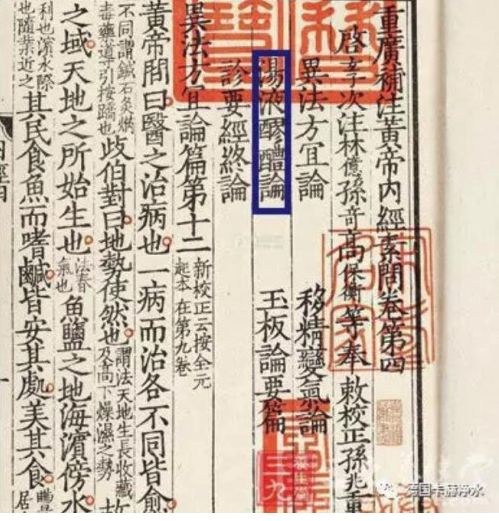 重廣補注黃帝內經素問卷第四
啓玄子次注林億孫奇高保衡等奉敕校正孫兆重
異法方宜論 移精變氣論
湯液醪醴論 玉板論要篇
診要經終論
異法方宜論篇第十二 新校正云按全元
起本在第九卷
黃帝問曰醫之治病也一病而治各不同皆愈
不同謂鍼石灸焫
毒藥導引按蹻也
歧伯對曰地勢使然也
謂法天地生長收藏
及高下燥濕之勢
故
之域天地之所始生也
法春
氣也
魚鹽之地海濱傍水
利也濱水際
也隨業近之
其民食魚而嗜鹹皆安其處美其食
居
三九
养生堂
德国卡赫净水